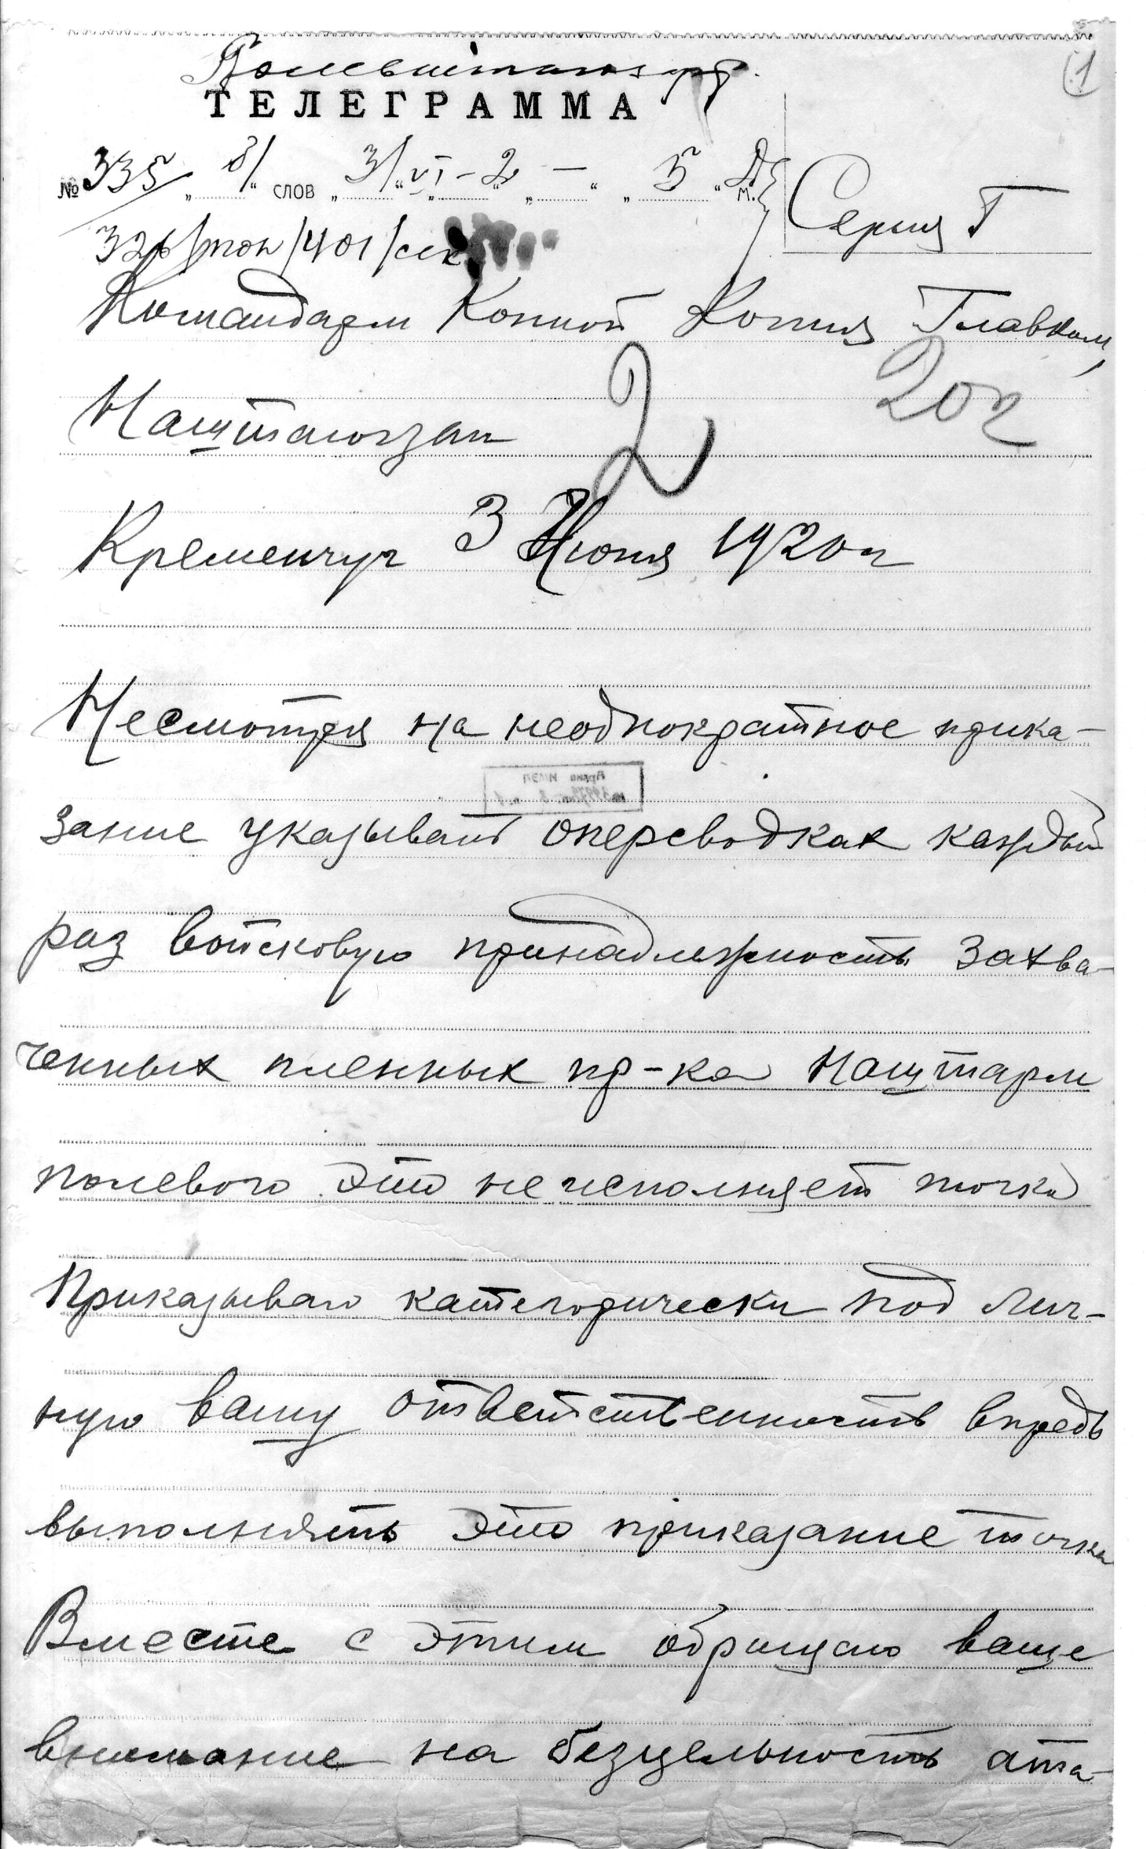 Полевштаюзф.
ТЕЛЕГРАММА
1
№ 335 8/ слов 31/VI - 2 - 5 м.
Серия Г
326/пол/401/сек
Командарм Конной Копия Главком,
Наштаюзап
2
20г
Кременчуг 3 Июня 1920г
Несмотря на неоднократное прика-
зание указывать оперсводках каждый
раз войсковую принадлежность захва-
ченных пленных пр-ка Наштарм
полевого это не исполняет точка
Приказываю категорически под лич-
ную вашу ответственность впредь
выполнять это приказание точка
Вместе с этим обращаю ваше
внимание на безцельность ата-